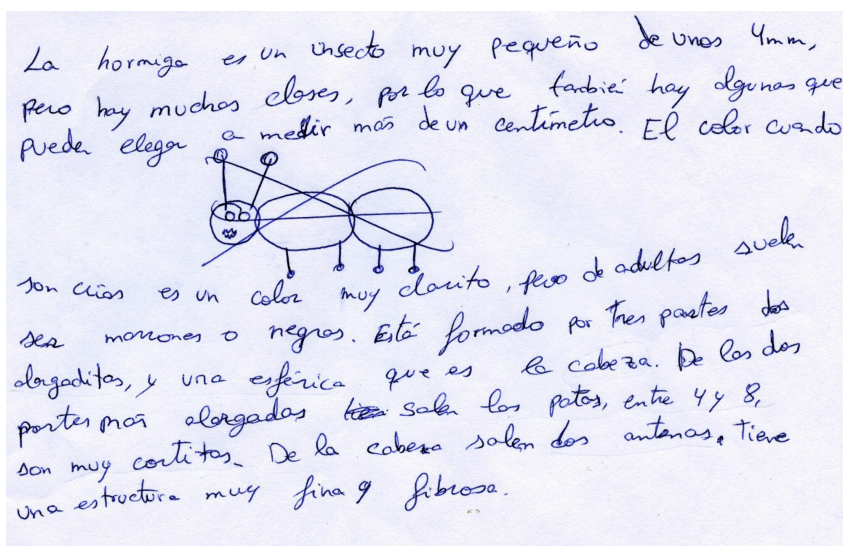 La hormiga es un insecto muy pequeño de unos 4mm,
pero hay muchas clases, por lo que también hay algunas que
pueden elegar a medir más de un centímetro. El color cuando
son crías es un color muy clarito, pero de adultas suelen
ser marrones o negras. Está formado por tres partes dos
alargaditas, y una esférica que es la cabeza. De las dos
partes más alargadas salen las patas, entre 4 y 8,
son muy cortitas. De la cabeza salen dos antenas. Tiene
una estructura muy fina y fibrosa.